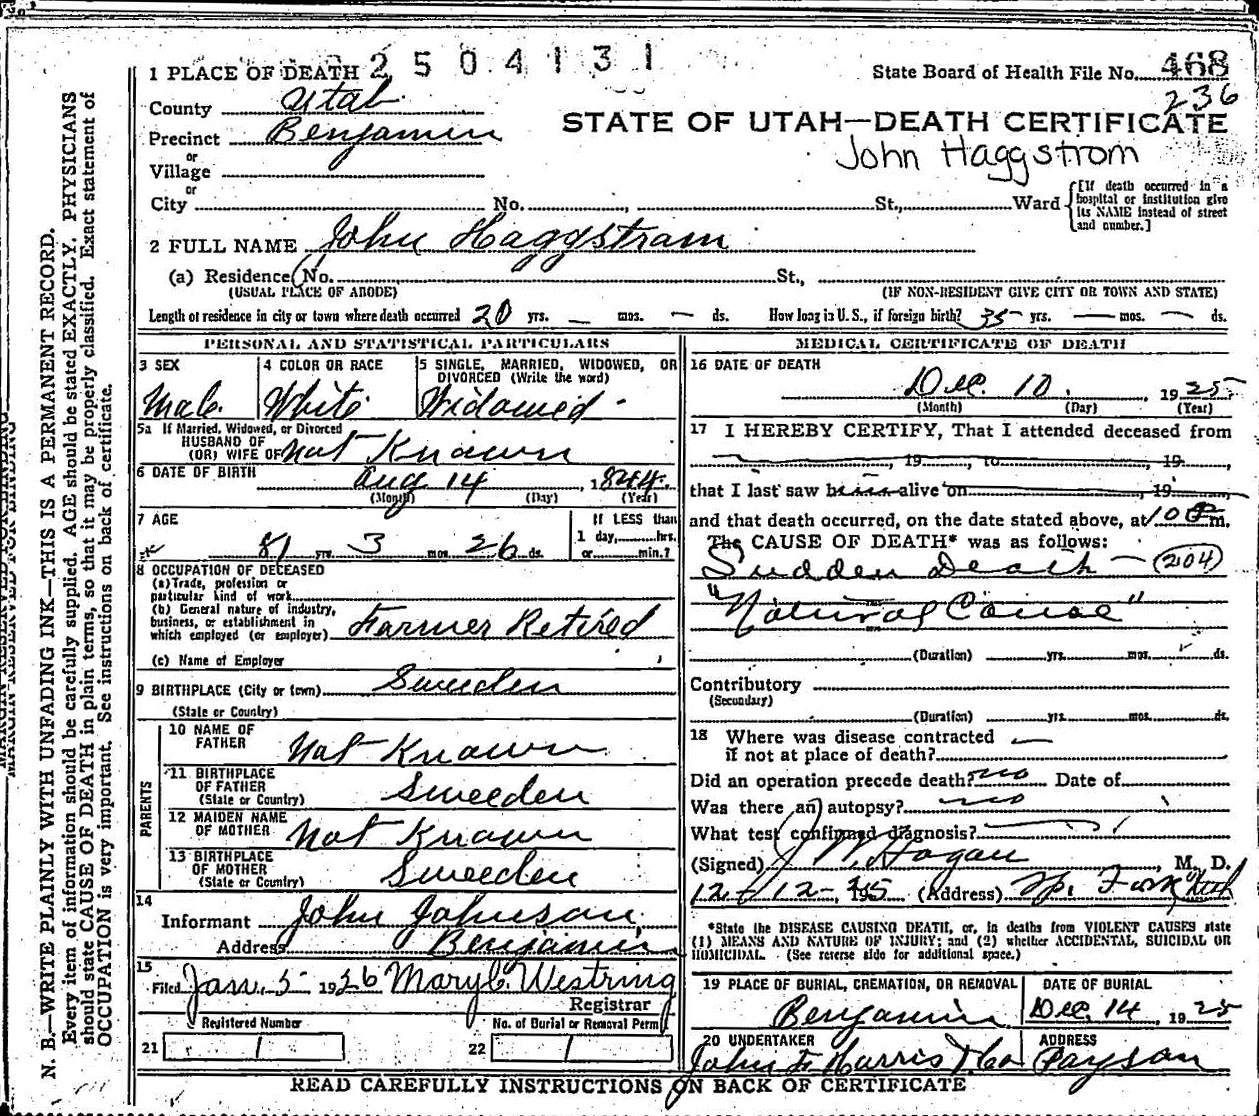 1 PLACE OF DEATH 2504131
State Board of Health File No. 468
236
County Utah
Precinct Benjamin
STATE OF UTAH—DEATH CERTIFICATE
John Haggstrom
or
Village
or
City No. , St., Ward
[If death occurred in a hospital or institution give its NAME instead of street and number.]
2 FULL NAME John Haggstrom
(a) Residence No. St.,
(USUAL PLACE OF ABODE) (IF NON-RESIDENT GIVE CITY OR TOWN AND STATE)
Length of residence in city or town where death occurred 20 yrs. — mos. — ds. How long in U.S., if foreign birth? 35 yrs. — mos. — ds.
PERSONAL AND STATISTICAL PARTICULARS
3 SEX 4 COLOR OR RACE 5 SINGLE, MARRIED, WIDOWED, OR DIVORCED (Write the word)
Male White Widowed
5a If Married, Widowed, or Divorced
HUSBAND OF
(OR) WIFE OF Not Known
6 DATE OF BIRTH Aug 14, 1844.
(Month) (Day) (Year)
7 AGE If LESS than
1 day, hrs.
81 yrs. 3 mos. 26 ds. or min.?
8 OCCUPATION OF DECEASED
(a) Trade, profession or
particular kind of work
(b) General nature of industry,
business, or establishment in
which employed (or employer) Farmer Retired
(c) Name of Employer
9 BIRTHPLACE (City or town) Sweeden
(State or Country)
PARENTS
10 NAME OF
FATHER Not Known
11 BIRTHPLACE
OF FATHER
(State or Country) Sweeden
12 MAIDEN NAME
OF MOTHER Not Known
13 BIRTHPLACE
OF MOTHER
(State or Country) Sweeden
14
Informant John Johnson
Address Benjamin
15
Filed Jan. 5 1926 Mary C. Westring
Registrar
Registered Number No. of Burial or Removal Permit
21 22
MEDICAL CERTIFICATE OF DEATH
16 DATE OF DEATH
Dec. 10. 1925
(Month) (Day) (Year)
17 I HEREBY CERTIFY, That I attended deceased from
, 19 , to 19 ,
that I last saw him alive on , 19
and that death occurred, on the date stated above, at 10 P m.
The CAUSE OF DEATH* was as follows:
Sudden Death — (204)
"Natural Cause"
(Duration) yrs. mos. ds.
Contributory
(Secondary)
(Duration) yrs. mos. ds.
18 Where was disease contracted
if not at place of death? —
Did an operation precede death? no Date of
Was there an autopsy? no
What test confirmed diagnosis?
(Signed) J W. Hogan, M. D.
12-12-, 1925 (Address) Sp. Fork Utah
*State the DISEASE CAUSING DEATH, or, in deaths from VIOLENT CAUSES state
(1) MEANS AND NATURE OF INJURY; and (2) whether ACCIDENTAL, SUICIDAL OR
HOMICIDAL. (See reverse side for additional space.)
19 PLACE OF BURIAL, CREMATION, OR REMOVAL DATE OF BURIAL
Benjamin Dec. 14, 1925
20 UNDERTAKER ADDRESS
John F Harris & Co Payson
READ CAREFULLY INSTRUCTIONS ON BACK OF CERTIFICATE
MARGIN RESERVED FOR BINDING
N. B.—WRITE PLAINLY WITH UNFADING INK—THIS IS A PERMANENT RECORD.
Every item of information should be carefully supplied. AGE should be stated EXACTLY. PHYSICIANS
should state CAUSE OF DEATH in plain terms, so that it may be properly classified. Exact statement of
OCCUPATION is very important. See instructions on back of certificate.